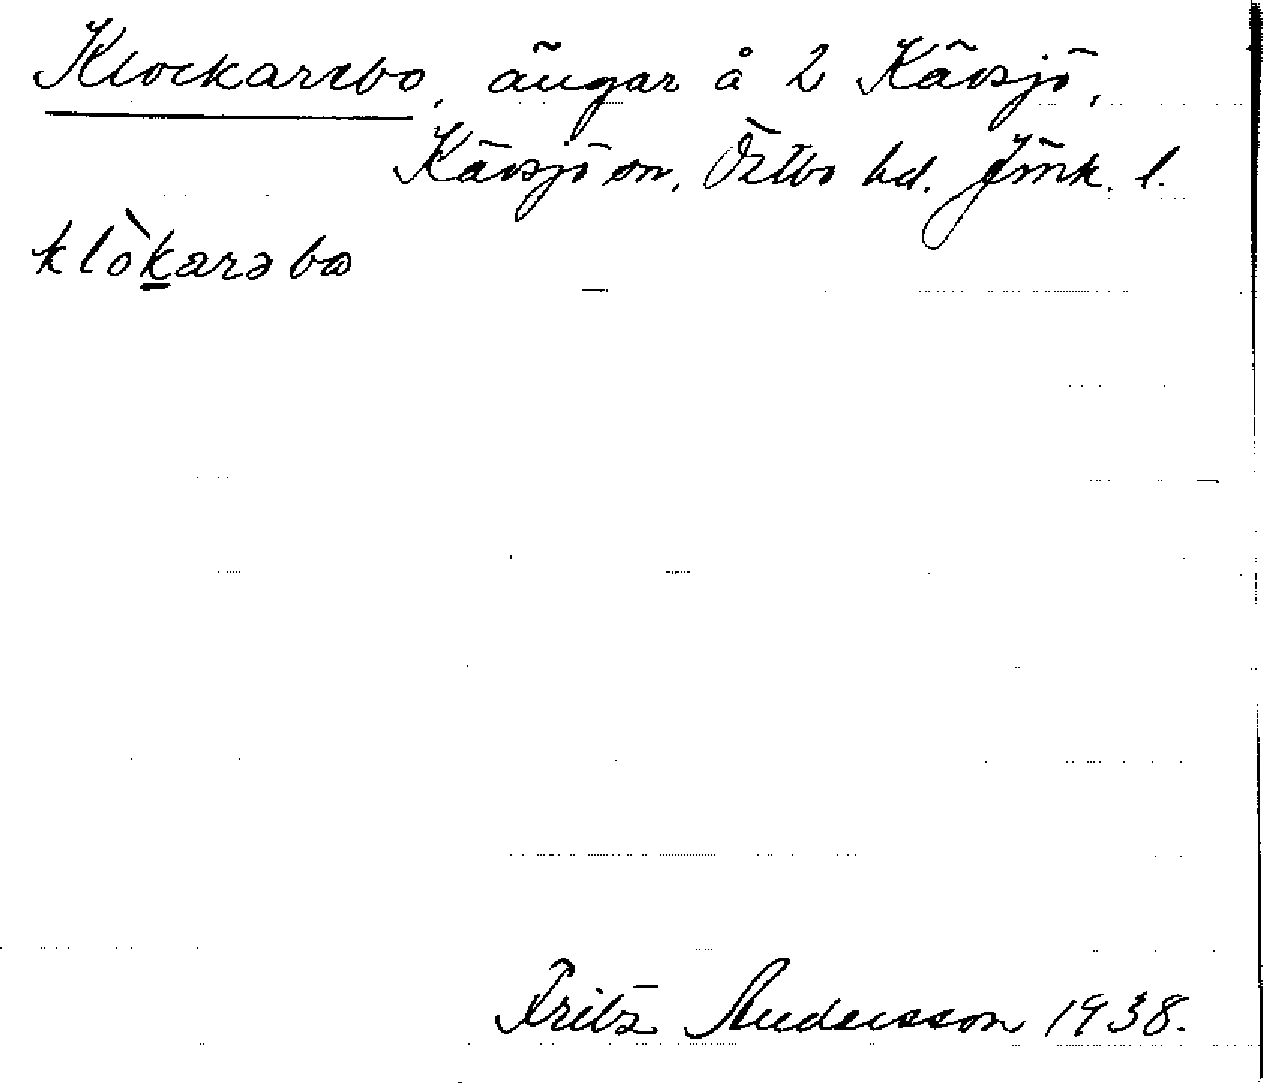 Klockarebo, ängar å 2 Kävsjö,
Kävsjö sn, Östbo hd. Jönk. l.
klòkarəbo
Fritz Andersson 1938.